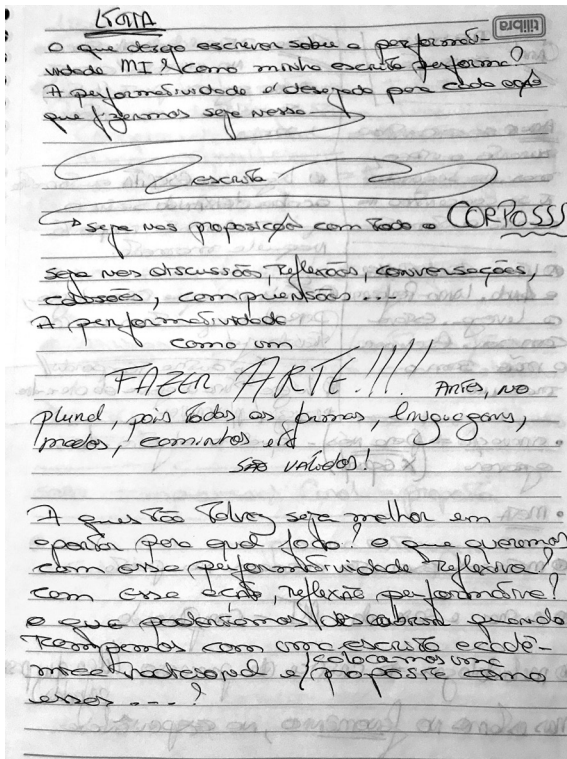 tilibra
O que desejo escrever sobre a performati-
vidade MI? Como minha escrita performa?
A performatividade é desejada para cada ação
que fizermos seja nessa
escrita
seja nas proposições com todo o CORPOSSS
seja nas discussões, reflexões, conversações,
colisões, compreensões...
A performatividade
como um
FAZER ARTE!!!! ARTES, NO
plural, pois todas as formas, linguagens,
modos, caminhos
SÃO VÁLIDOS!
A questão talvez seja melhor em
apontar para qual lado? O que queremos
com essa performatividade reflexiva?
com essa ação, reflexão performativa?
o que poderíamos descobrir quando
rompemos com uma escrita acadê-
mica tradicional e/ colocamos uma
proposta como
essas ...?